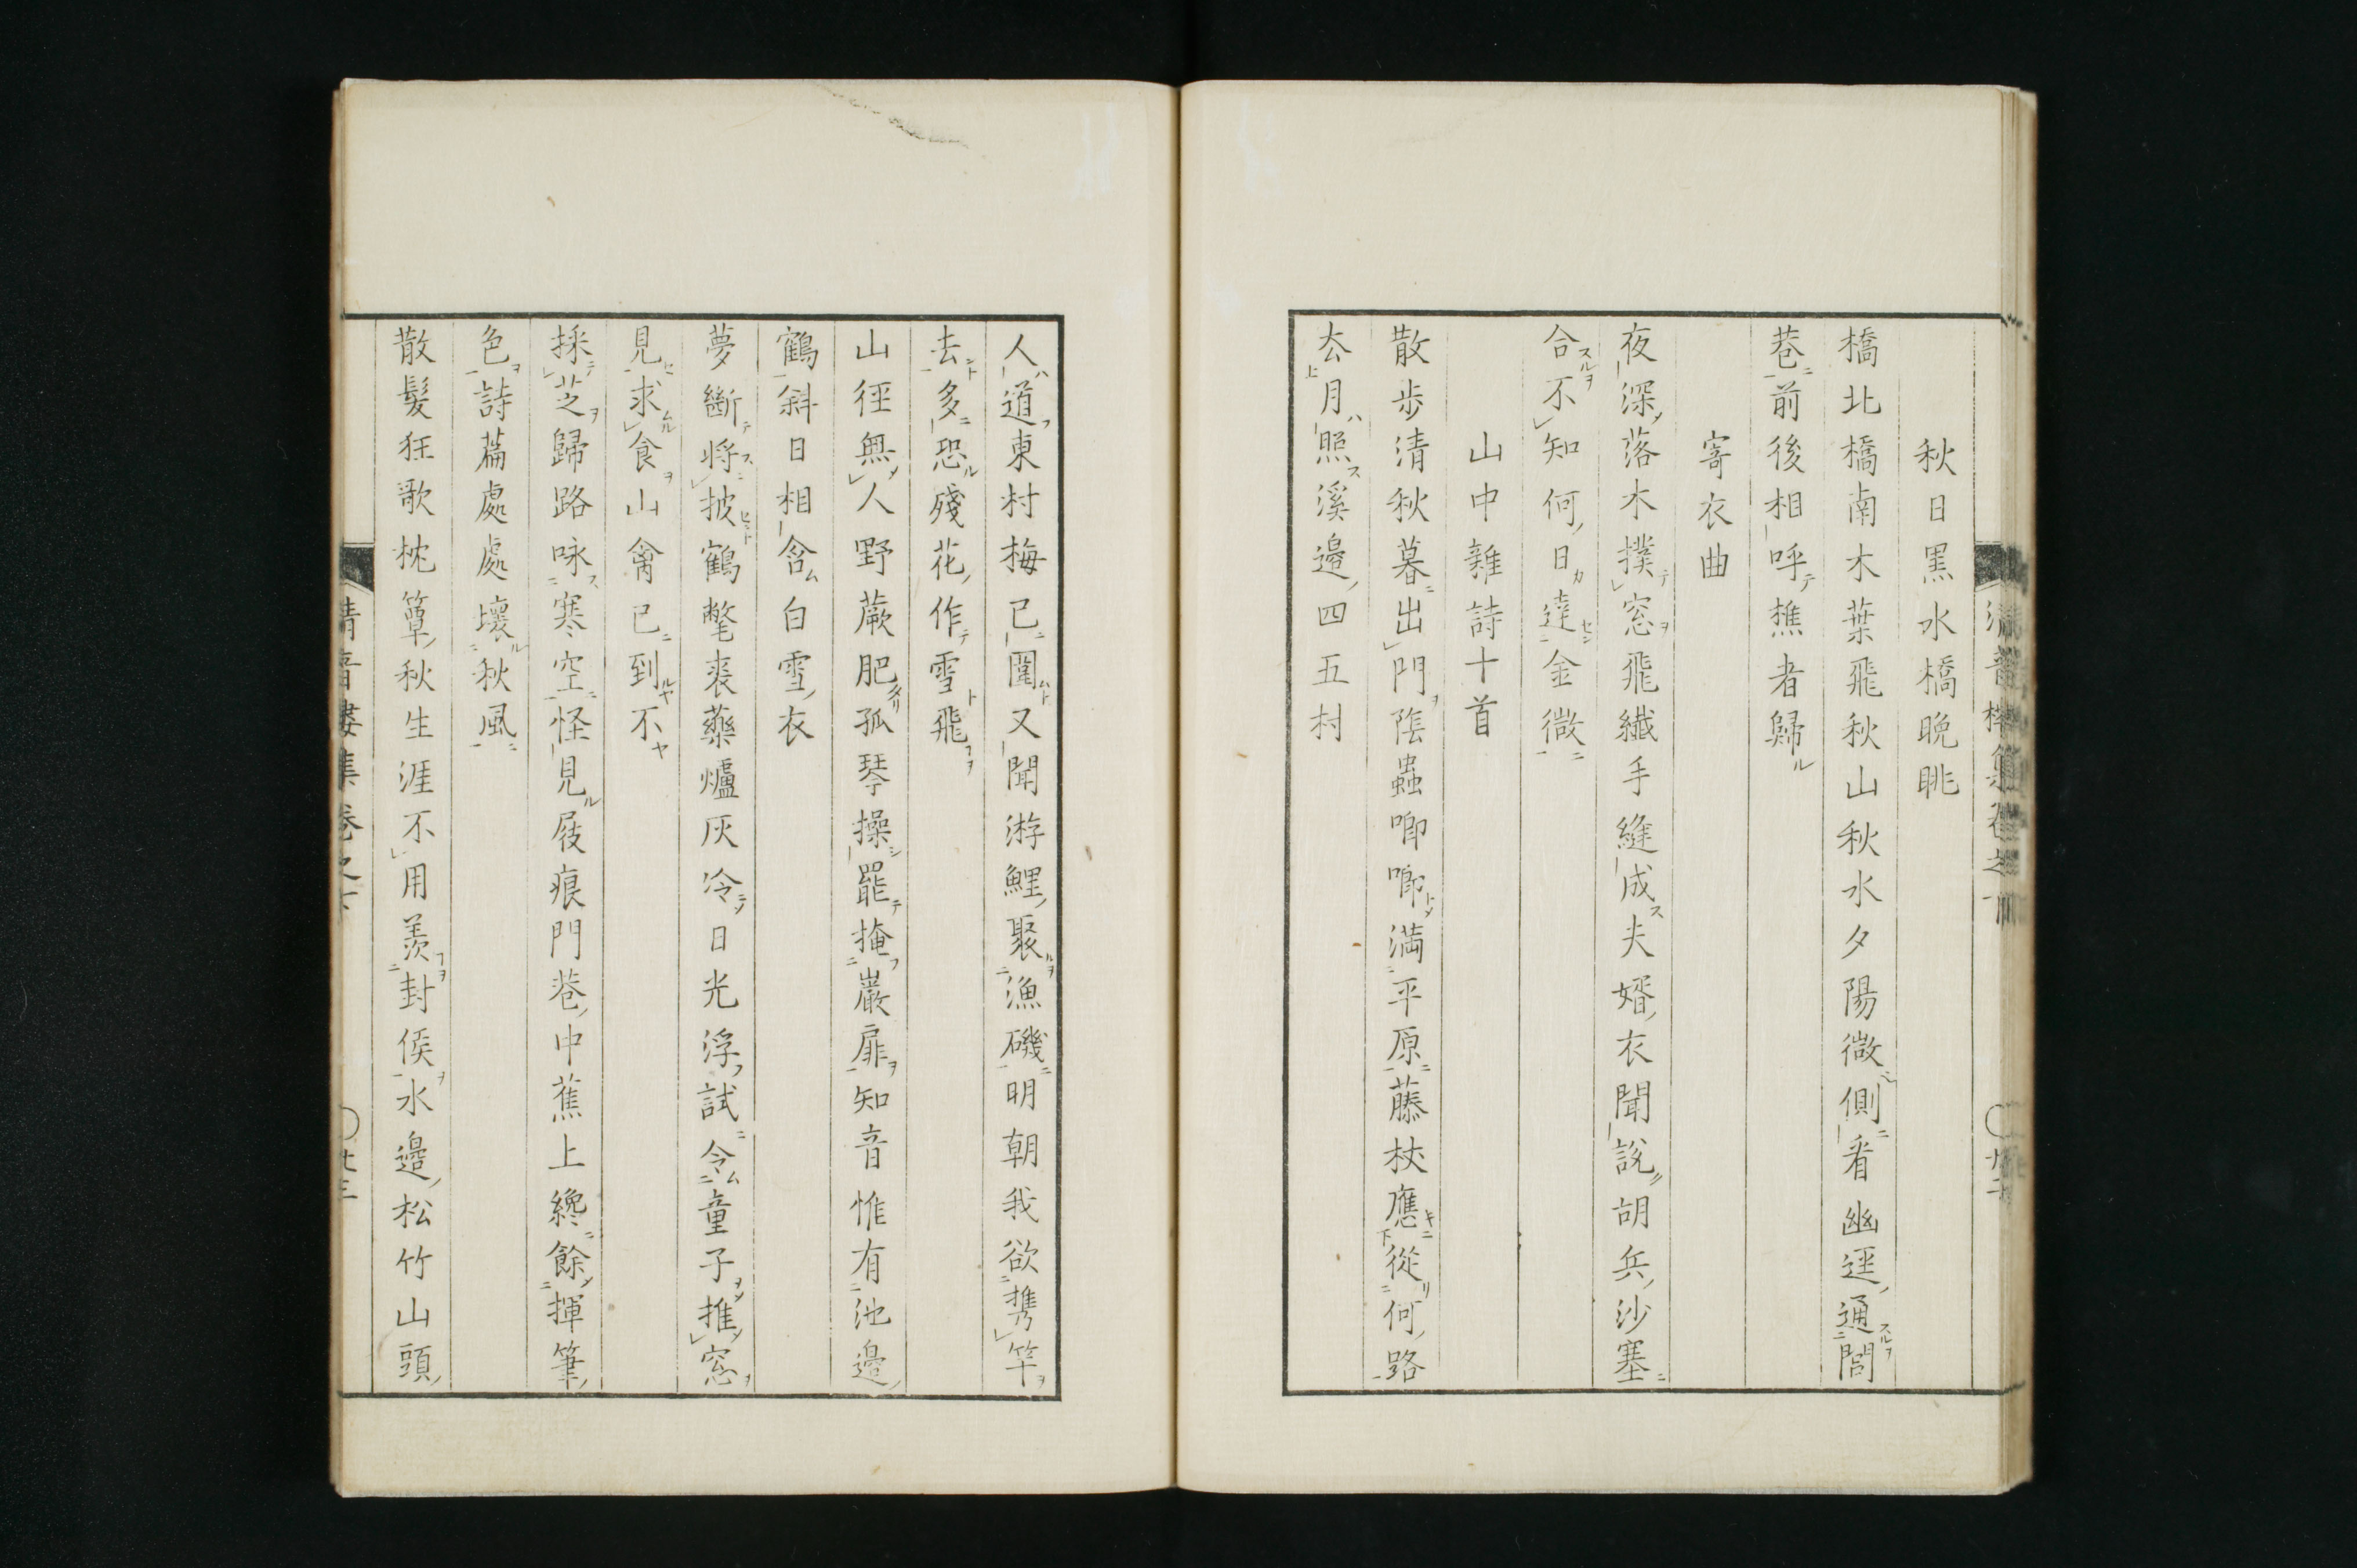 秋日黒水橋晩眺
橋北橋南木葉飛秋山秋水夕陽微側看幽逕通閭
巷前後相呼樵者歸
寄衣曲
夜深落木撲窓飛纖手縫成夫婿衣聞説胡兵沙塞
合不知何日達金微
山中雜詩十首
散歩清秋暮出門陰蟲喞喞満平原藤杖應從何路
去月照溪邉四五村
人道東村梅已圍又聞游鯉聚漁磯明朝我欲携竿
去多恐殘花作雪飛
山徑無人野蕨肥孤琴操罷掩巖扉知音惟有池邉
鶴斜日相含白雪衣
夢斷将披鶴氅裘藥爐灰冷日光浮試令童子推窓
見求食山禽已到不
採芝歸路咏寒空怪見屐痕門巷中蕉上纔餘揮筆
色詩篇處處壞秋風
散髮狂歌枕簟秋生涯不用羨封侯水邉松竹山頭